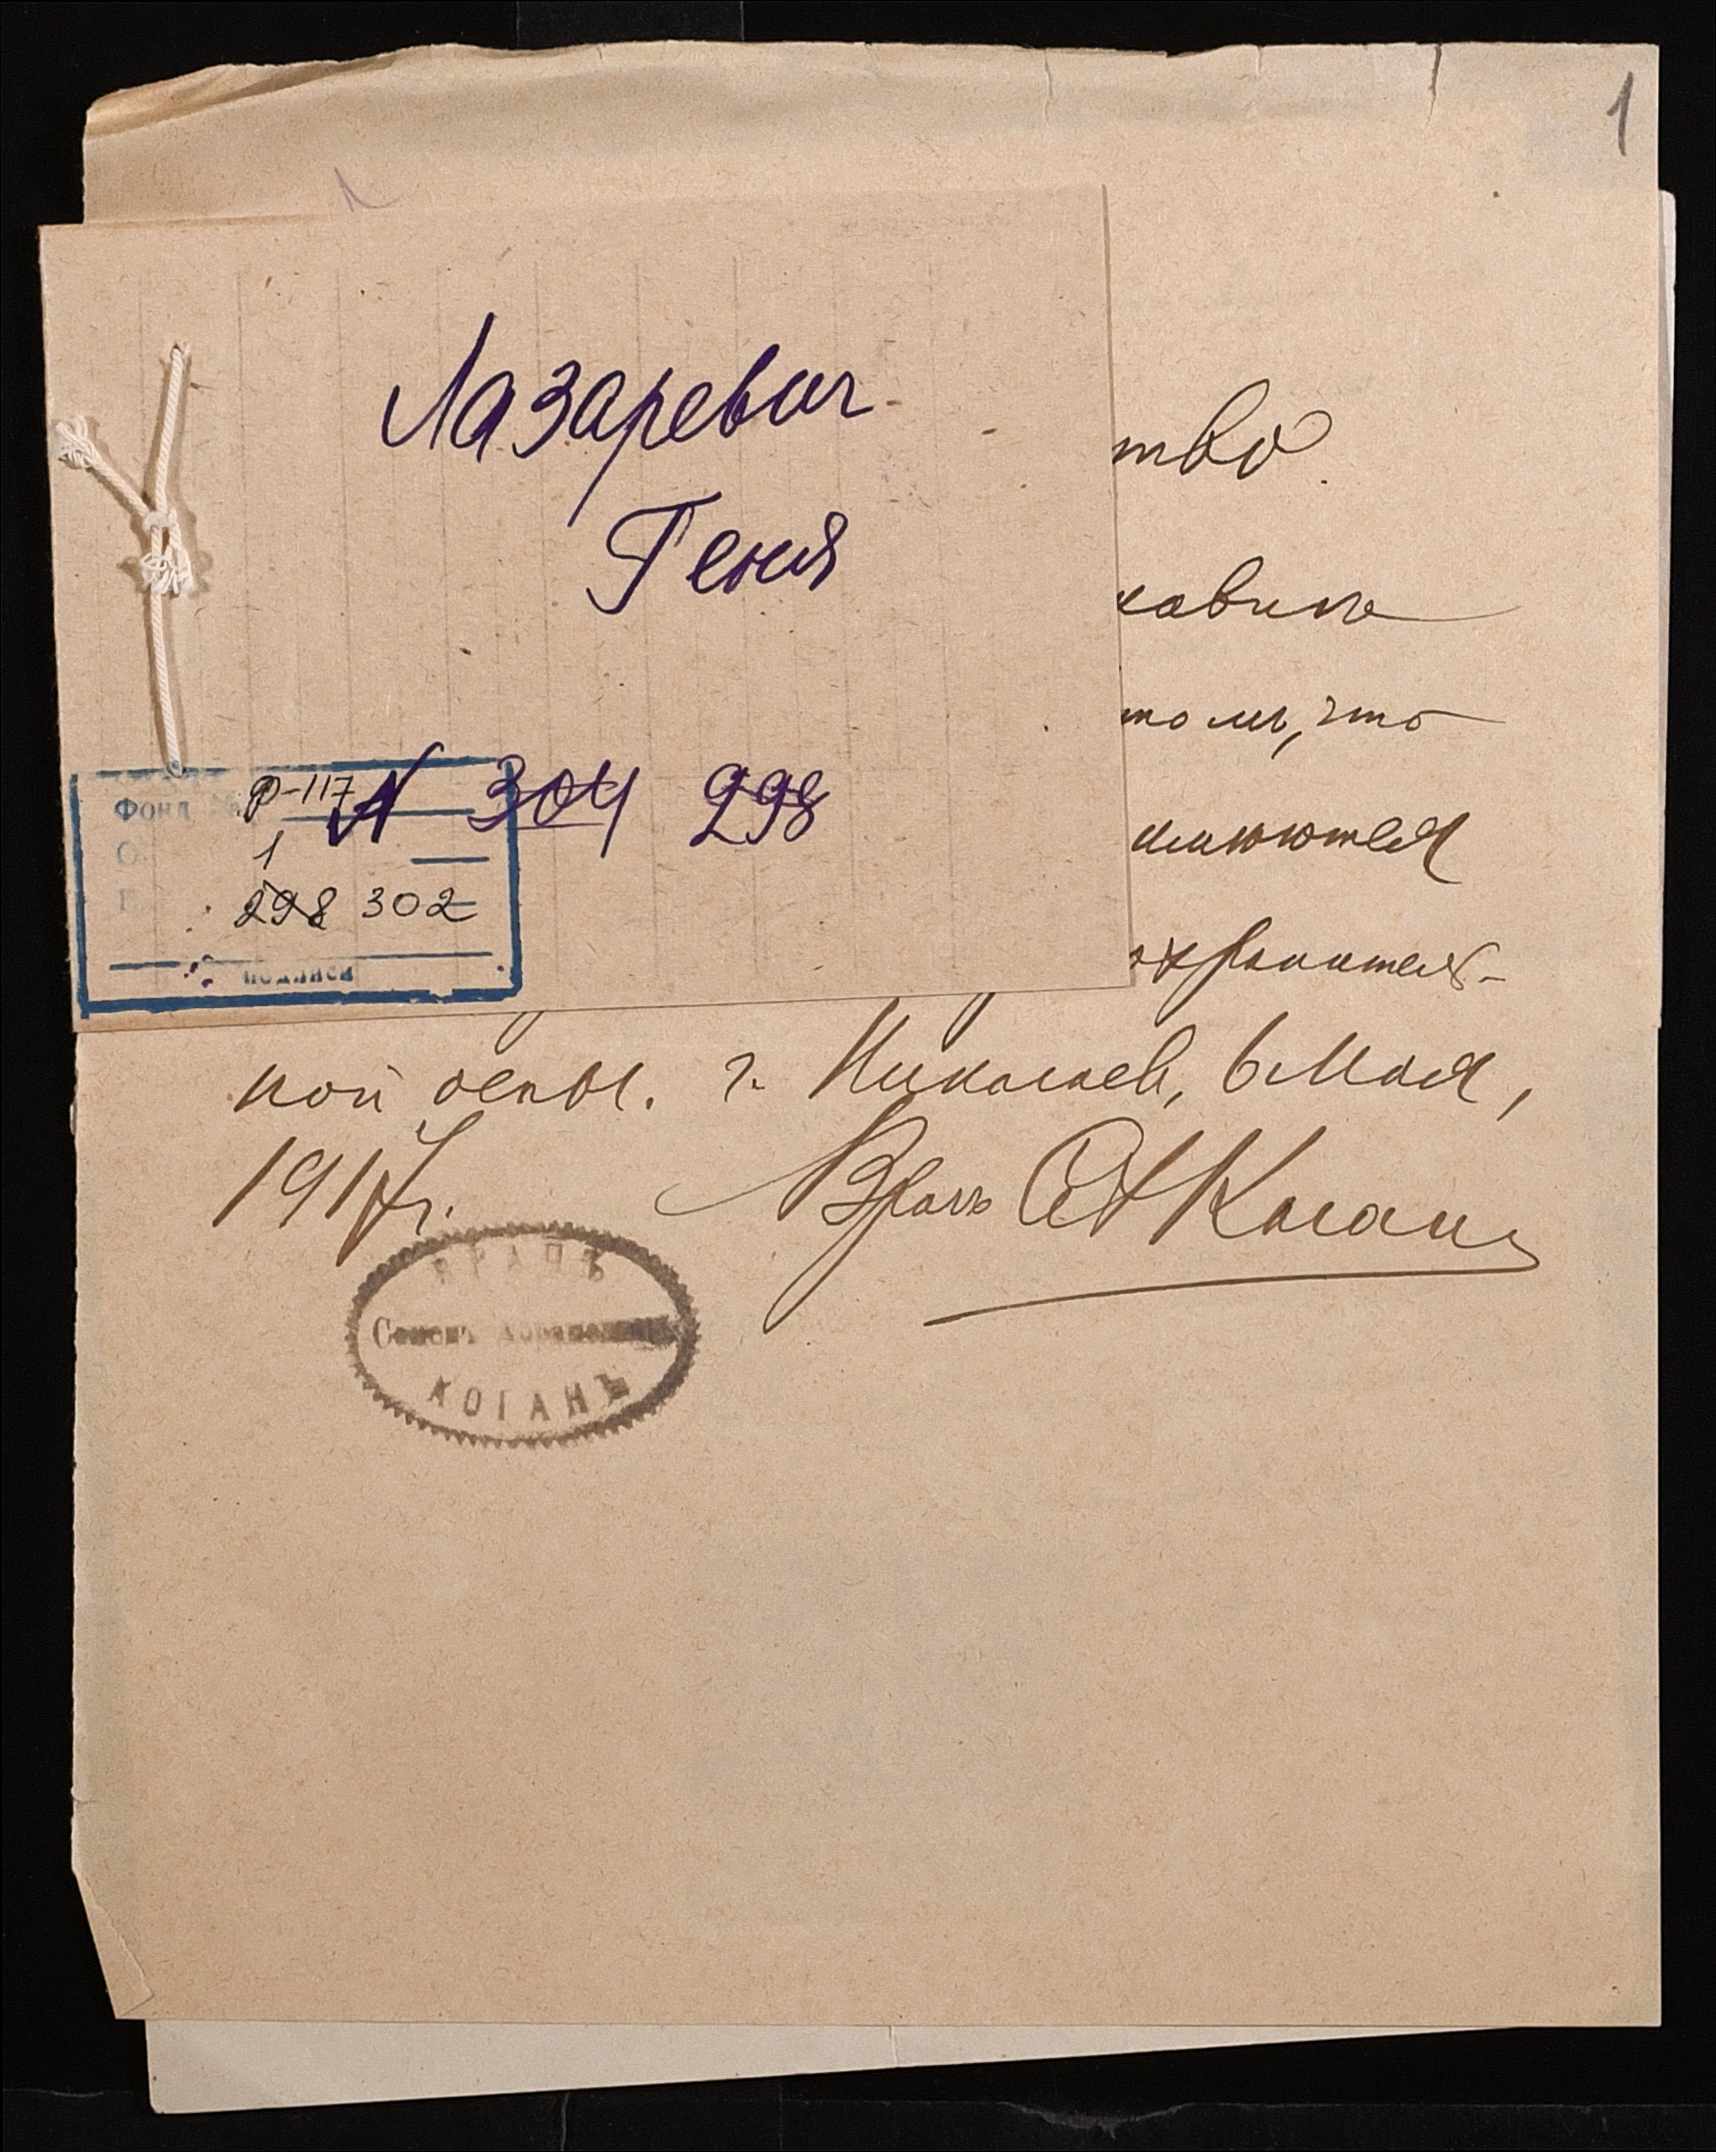 1
Лазаревич
Геня
N 304 298
Фонд Р-117
1
298 302
подписи
тво.
томъ, что
имеются
охранитель-
ной оспы. г. Николаевъ, 6 Мая,
1917 г. Врачъ СА Коганъ
ВРАЧЪ
Семенъ Абрамовичъ
КОГАНЪ